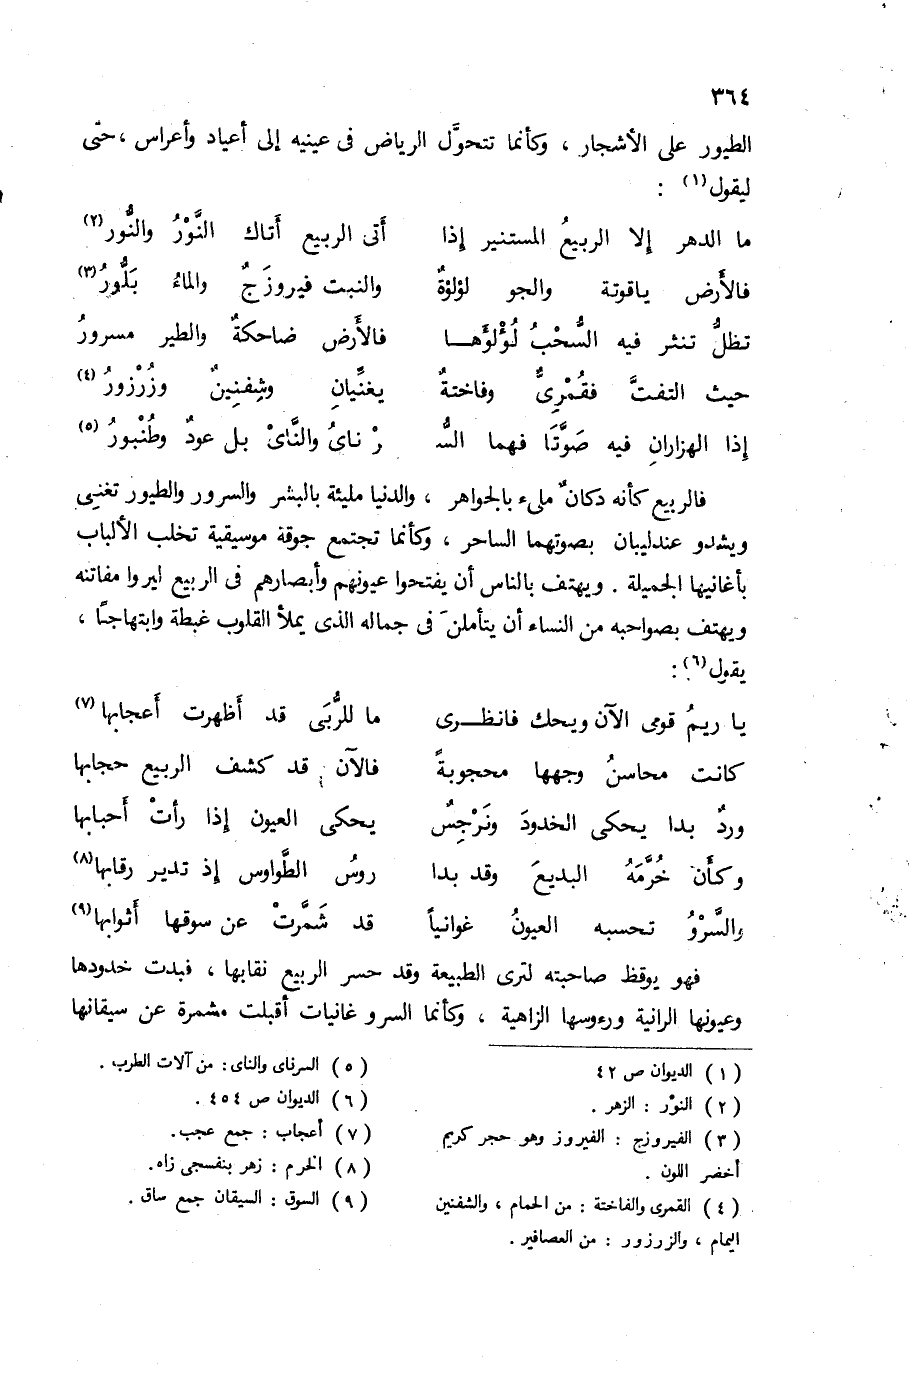 ٣٦٤
الطيور على الأشجار ، وكأنما تتحوَّل الرياض فى عينيه إلى أعياد وأعراس ، حتى
ليقول(١) :
ما الدهر إلا الربيعُ المستنير إذا أتى الربيع أتاك النَّوْرُ والنُّورُ(٢)
فالأَرض ياقوتة والجو لؤلؤةٌ والنبت فيروزَجٌ والماءُ بَلُّورُ(٣)
تظلُّ تنثر فيه السُّحْبُ لُؤْلُؤَهــا فالأَرض ضاحكةٌ والطير مسرورُ
حيث التفتَّ فقُمْرِىٌّ وفاختةٌ يغنِّيانِ وشِفنِينٌ وزُرْزورُ(٤)
إذا الهزارانِ فيه صَوَّتَا فهما السُّـ رْ ناىُ والنَّاىْ بل عودٌ وطُنْبورُ(٥)
فالربيع كأنه دكانٌ ملىء بالجواهر ، والدنيا مليئة بالبشر والسرور والطيور تغنِى
ويشدو عندليبان بصوتهما الساحر ، وكأنما تجتمع جوقة موسيقية تخلب الألباب
بأغانيها الجميلة . ويهتف بالناس أن يفتحوا عيونهم وأبصارهم فى الربيع ليروا مفاتنه
ويهتف بصواحبه من النساء أن يتأملنَ فى جماله الذى يملأ القلوب غبطة وابتهاجًا ،
يقول(٦) :
يا ريمُ قومى الآن ويحك فانظـرى ما للرُّبَى قد أَظهرت أَعجابها(٧)
كانت محاسنُ وجهها محجوبةً فالآن قد كشف الربيع حجابها
وردٌ بدا يحكى الخدودَ ونَرْجِسٌ يحكى العيون إذا رأتْ أَحبابها
وكأَن خُرَّمَهُ البديعَ وقد بدا روسُ الطَّواوس إذ تدير رقابها(٨)
والسَّرْوُ تحسبه العيونُ غوانياً قد شَمَّرتْ عن سوقها أَثوابها(٩)
فهو يوقظ صاحبته لترى الطبيعة وقد حسر الربيع نقابها ، فبدت خدودها
وعيونها الرانية ورءوسها الزاهية ، وكأنما السرو غانيات أقبلت مشمرة عن سيقانها
(١) الديوان ص ٤٢
(٢) النوْر : الزهر .
(٣) الفيروزج : الفيروز وهو حجر كريم
أخضر اللون .
(٤) القمرى والفاختة : من الحمام ، والشفنين
اليمام ، والزرزور : من العصافير .
(٥) السرناى والناى : من آلات الطرب .
(٦) الديوان ص ٤٥٤ .
(٧) أعجاب : جمع عجب.
(٨) الخرم : زهر بنفسجى زاه.
(٩) السوق : السيقان جمع ساق .